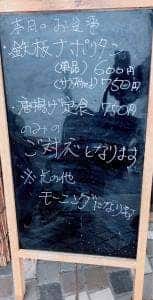 本日のお食事
・鉄板ナポリタン
(単品) 600円
(サラダ付) 750円
・唐揚げ定食 750円
のみの
ご対応となります
※その他
モーニングになります